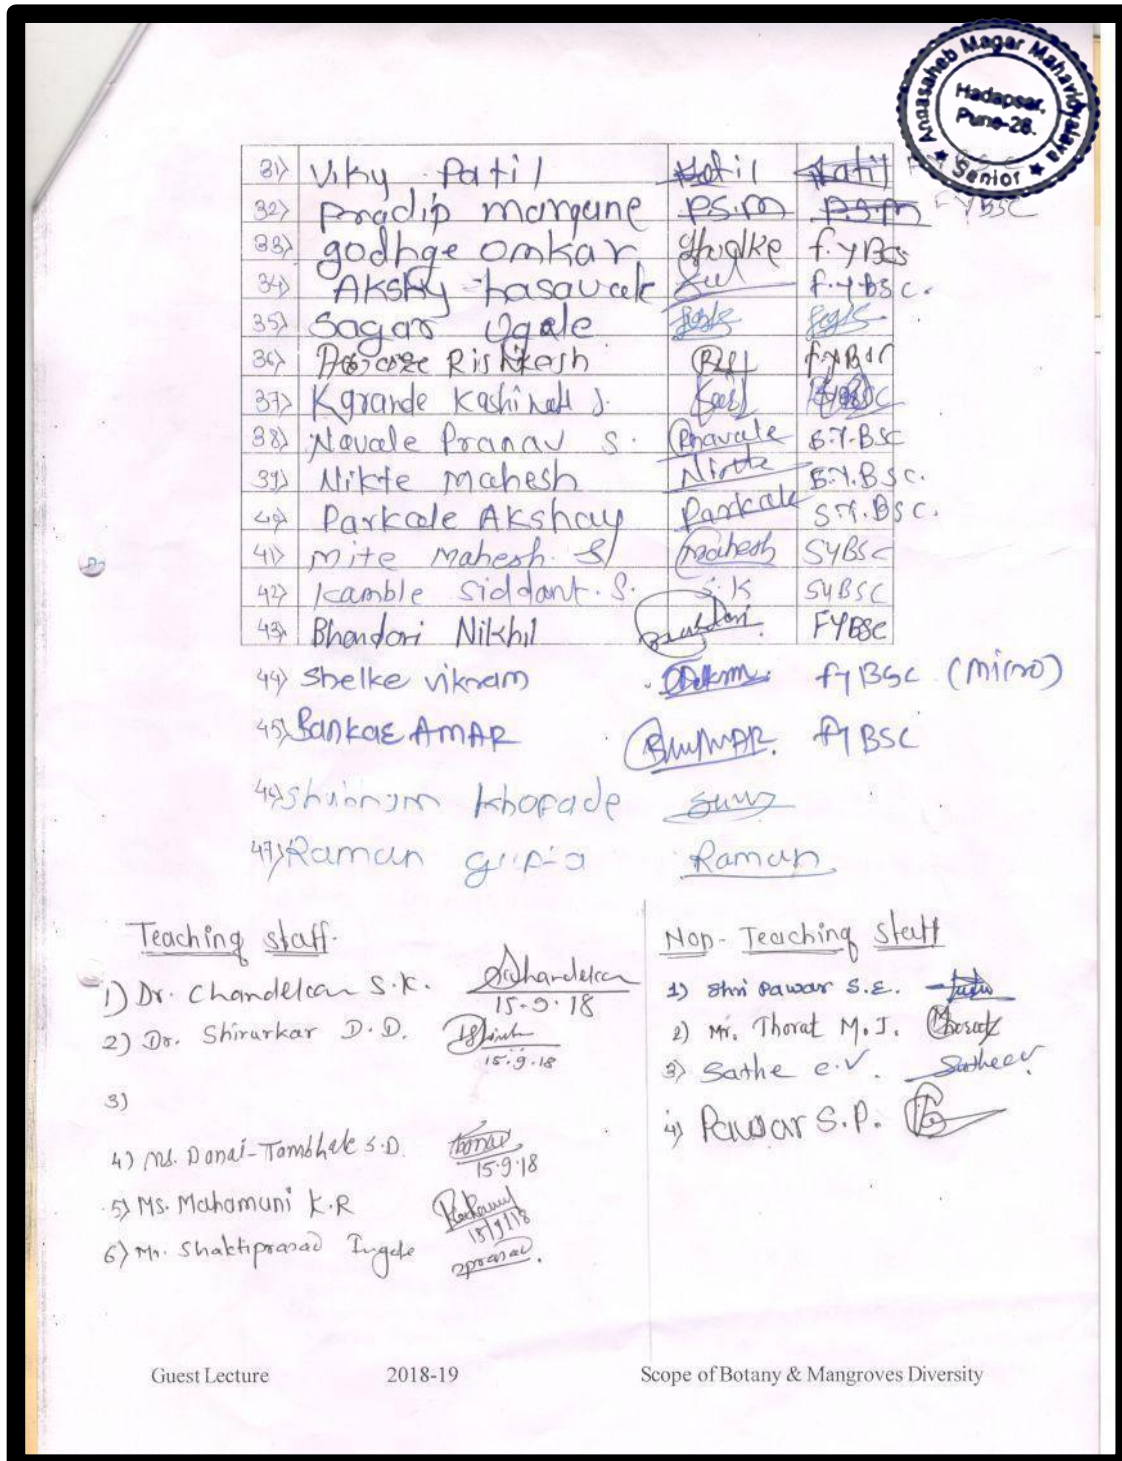 Annasaheb Magar Mahavidyalaya
Hadapsar,
Pune-28.
★ Senior ★
31) Viky Patil Patil Patil
32) Pradip margune P.S.M P.S.M FYBSC
33) godhge omkar f.yBcs
34) AKSHY f.y.BSC.
35) Sagar Ugale
36) Rishikesh f.yBsc
37) Kgrande Kashinath J.
38) Navale Pranav S. Pnavale S.Y.BSC
39) Nikte Mahesh Nikte S.Y.BSC.
40) Parkale Akshay Parkale S.Y.BSC.
41) Mite Mahesh. S Mahesh SYBSC
42) Kamble Siddant. S. S.K SYBSC
43) Bhandari Nikhil FYBSC
44) Shelke vikram fyBSC (micro)
45) Bankar AMAR fyBSC
46) Khopade
47) Raman Raman
Teaching staff.
1) Dr. Chandelkar S.K.
15-9-18
2) Dr. Shirurkar D.D.
15.9.18
3)
4) Ms. Donai-Tambhale S.D.
15.9.18
5) Ms. Mahamuni K.R
15/9/18
6) Mr. Shaktiprasad Ingale
Non-Teaching Staff
1) Shri Pawar S.E.
2) Mr. Thorat M.J.
3) Sathe C.V.
4) Pawar S.P.
Guest Lecture 2018-19 Scope of Botany & Mangroves Diversity